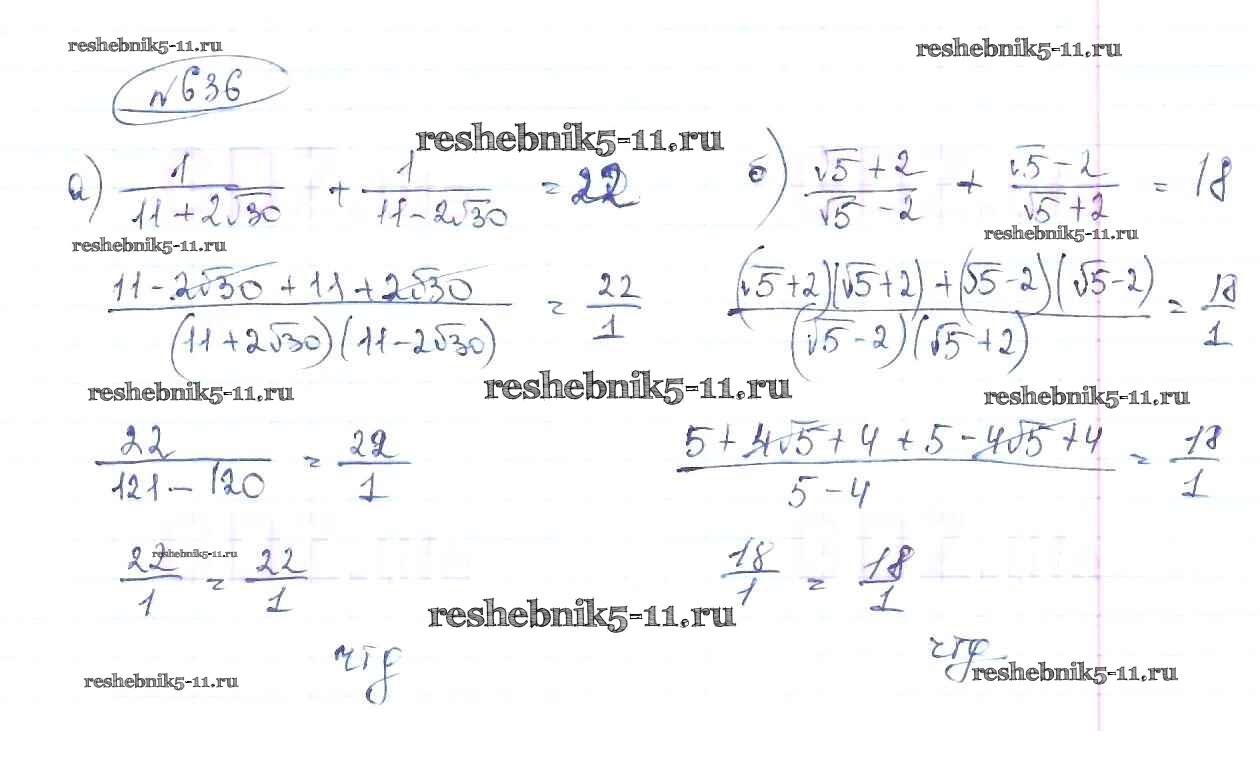 reshebnik5-11.ru reshebnik5-11.ru
№ 636
reshebnik5-11.ru
а) 1/(11 + 2√30) + 1/(11 - 2√30) = 22
б) (√5 + 2)/(√5 - 2) + (√5 - 2)/(√5 + 2) = 18
reshebnik5-11.ru reshebnik5-11.ru
(11 - 2√30 + 11 + 2√30)/((11 + 2√30)(11 - 2√30)) = 22/1
((√5 + 2)(√5 + 2) + (√5 - 2)(√5 - 2))/((√5 - 2)(√5 + 2)) = 18/1
reshebnik5-11.ru reshebnik5-11.ru reshebnik5-11.ru
22/(121 - 120) = 22/1
(5 + 4√5 + 4 + 5 - 4√5 + 4)/(5 - 4) = 18/1
reshebnik5-11.ru
22/1 = 22/1
18/1 = 18/1
reshebnik5-11.ru
чтд
чтд
reshebnik5-11.ru reshebnik5-11.ru